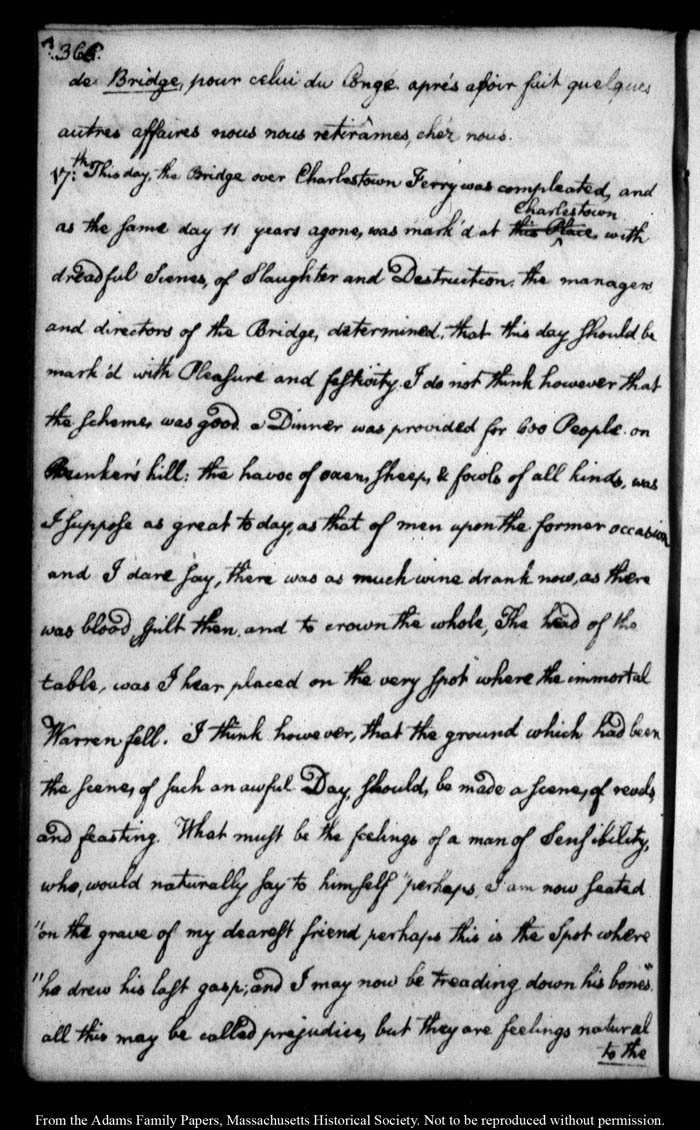 366.
de Bridge, pour celui du Congé. aprés avoir fait quelques
autres affaires nous nous retirâmes, chéz nous.
17:th This day, the Bridge over Charlestown Ferry was compleated, and
Charlestown
as the same day 11 years agone, was mark'd at this Place, with
dreadful Scenes, of Slaughter and Destruction. the managers
and directors of the Bridge, determined, that this day should be
mark'd with Pleasure and festivity. I do not think however that
the scheme, was good. a Dinner was provided for 600 People. on
Bunker's hill: the havoc of oxen, sheep, & fowls of all kinds, was
I suppose as great to day, as that of men upon the former occasion
and I dare say, there was as much wine drank now, as there
was blood, spilt then. and to crown the whole, The head of the
table, was I hear placed on the very spot where the immortal
Warren fell. I think however, that the ground which had been
the scene, of such an awful Day, should, be made a scene, of revels,
and feasting. What must be the feelings of a man of Sensibility,
who, would naturally say to himself "perhaps, I am now seated
"on the grave of my dearest friend perhaps this is the Spot where
"he drew his last gasp; and I may now be treading down his bones".
all this may be called prejudice, but they are feelings natural
to the
From the Adams Family Papers, Massachusetts Historical Society. Not to be reproduced without permission.